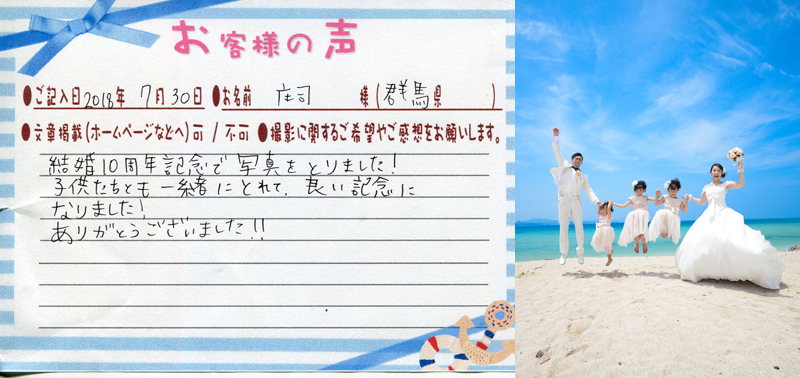 お客様の声
●ご記入日2018年 7月30日 ●お名前 庄司 様(群馬県 )
●文章掲載(ホームページなどへ)可 / 不可 ●撮影に関するご希望やご感想をお願いします。
結婚10周年記念で写真をとりました!
子供たちとも一緒にとれて、良い記念に
なりました!
ありがとうございました!!